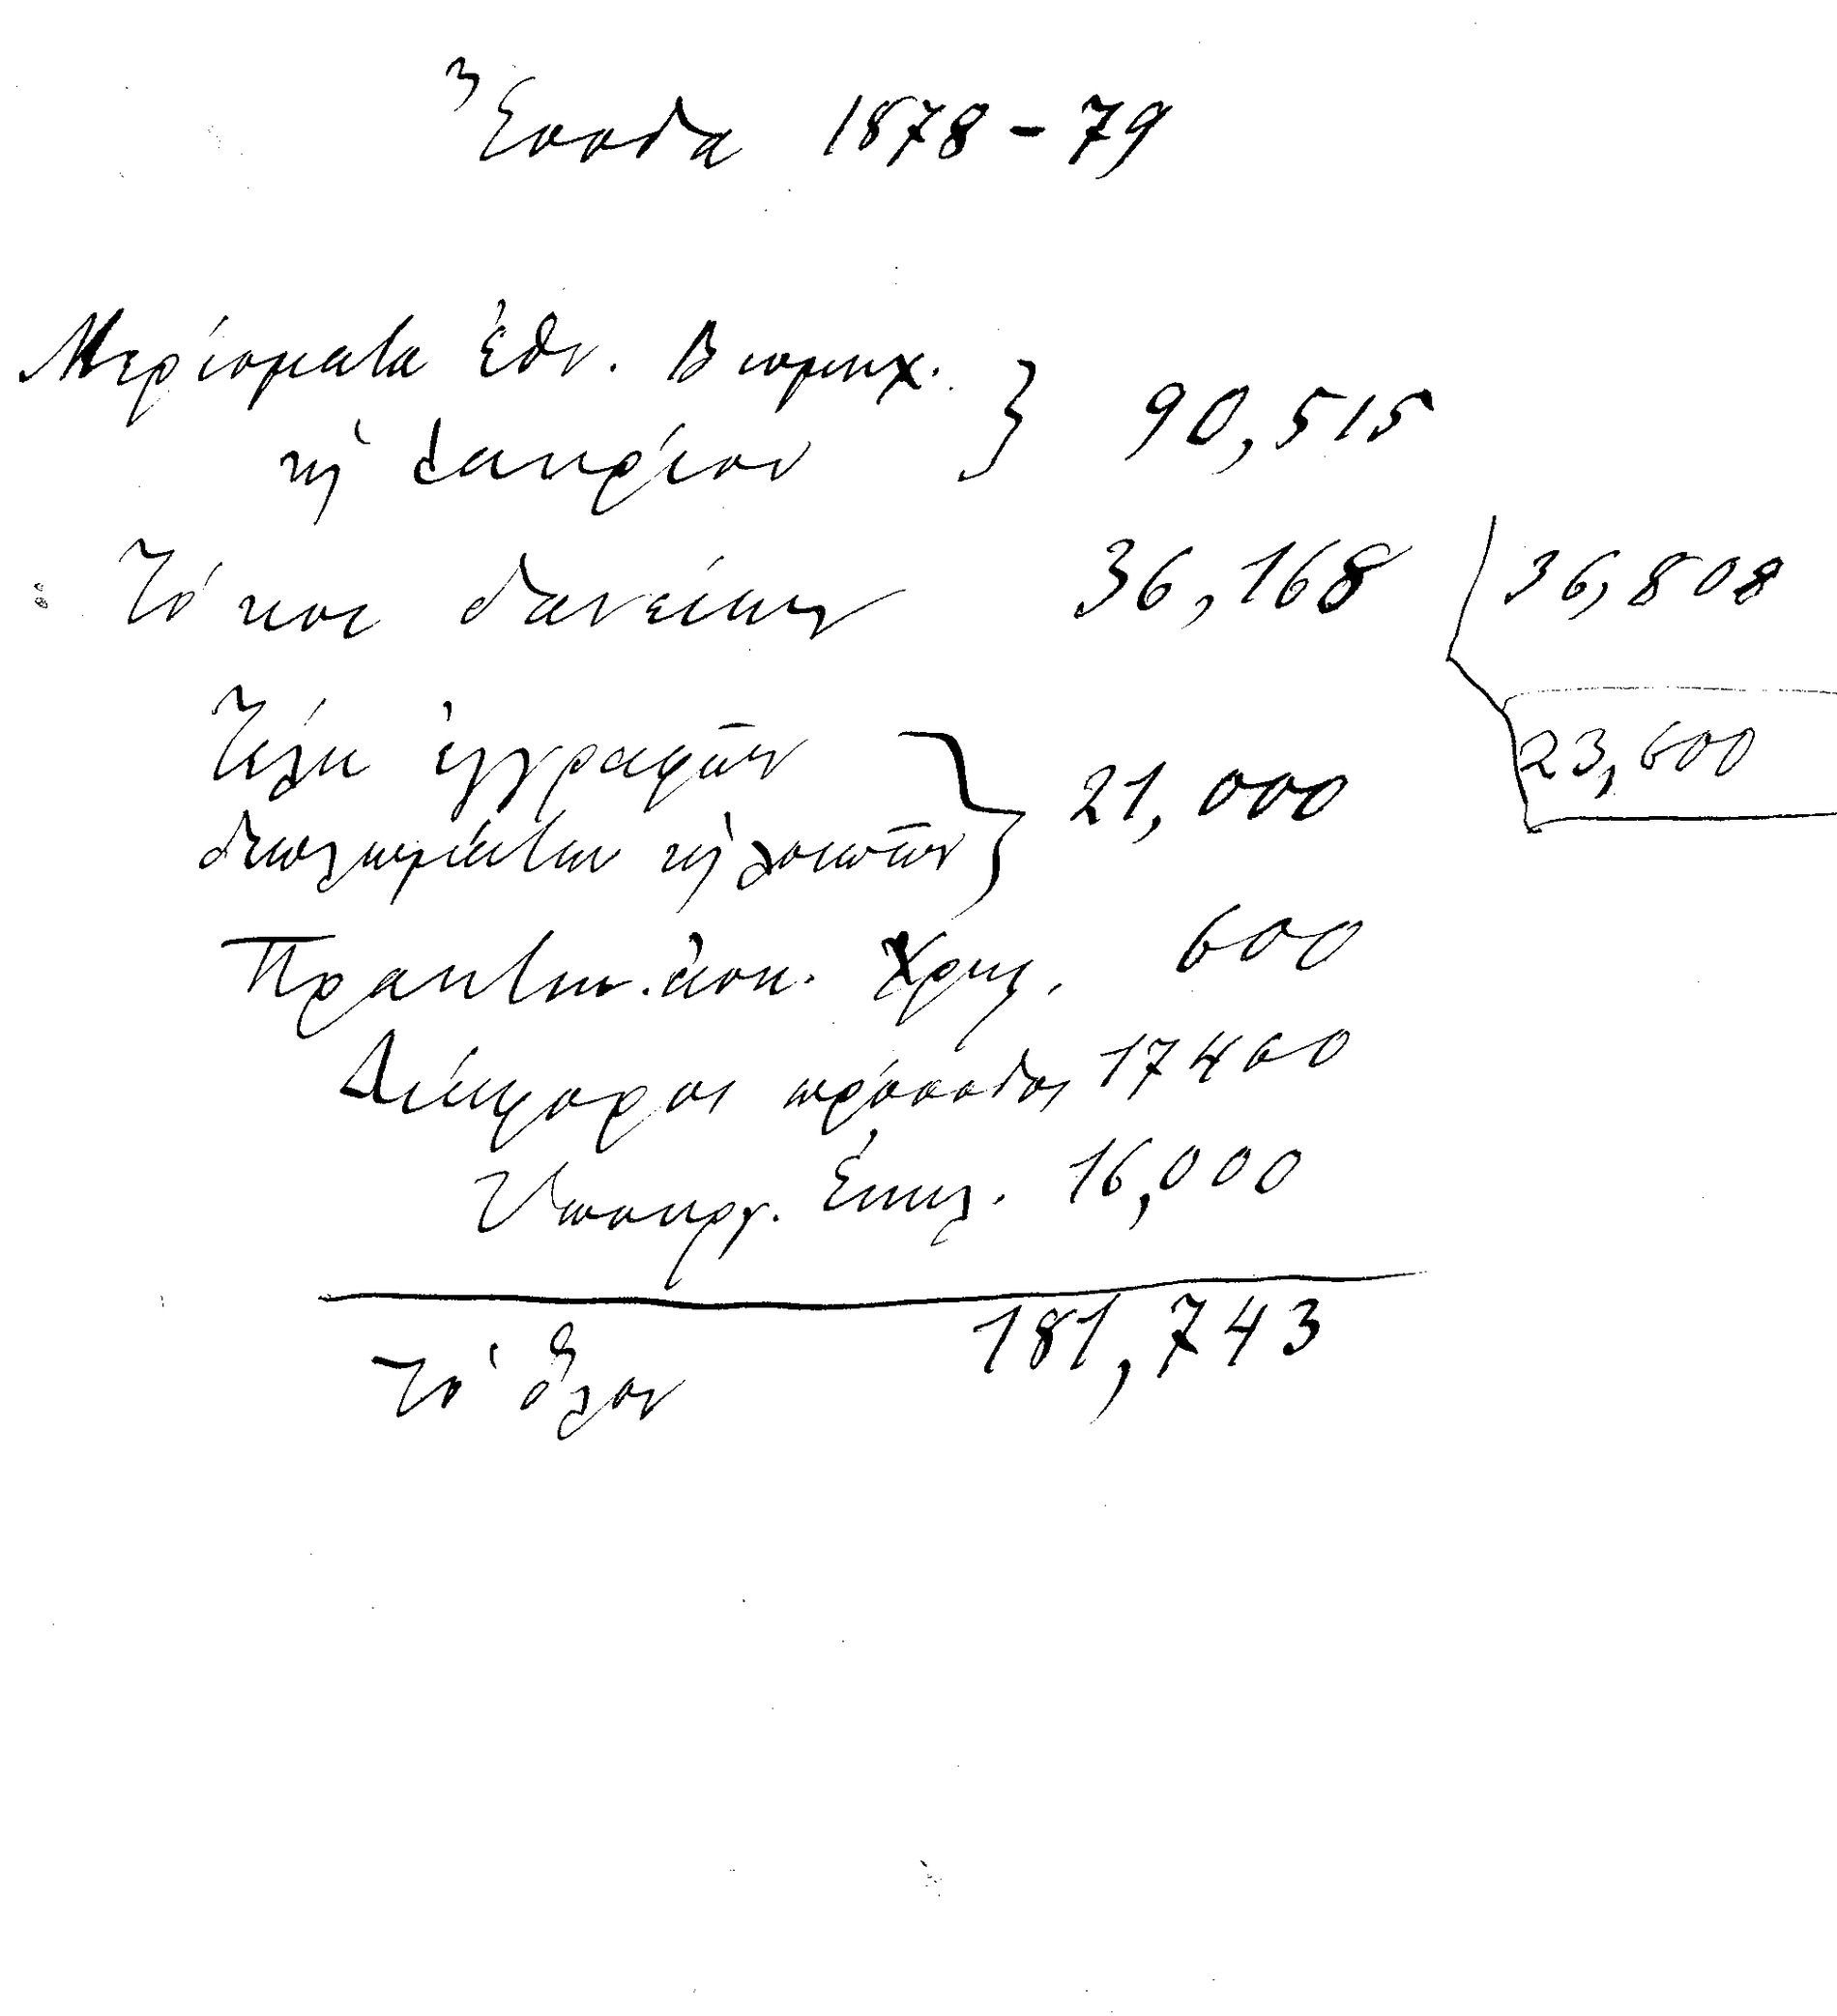 Ἔσοδα 1878-79
Μερίσματα Ἐθν. Βιομηχ.
καὶ Λαυρίου } 90,515
Τόκοι δανείων 36,168 36,808
Τέλη ἐγγραφῶν
διπλωμάτων καὶ λοιπῶν } 21,000 23,600
Πρακτικ. ἀσκ. Χημ. 600
Διάφοροι πρόσοδοι 17460
Ὑπουργ. Ἐκκλ. 16,000
Τὸ ὅλον 181,743